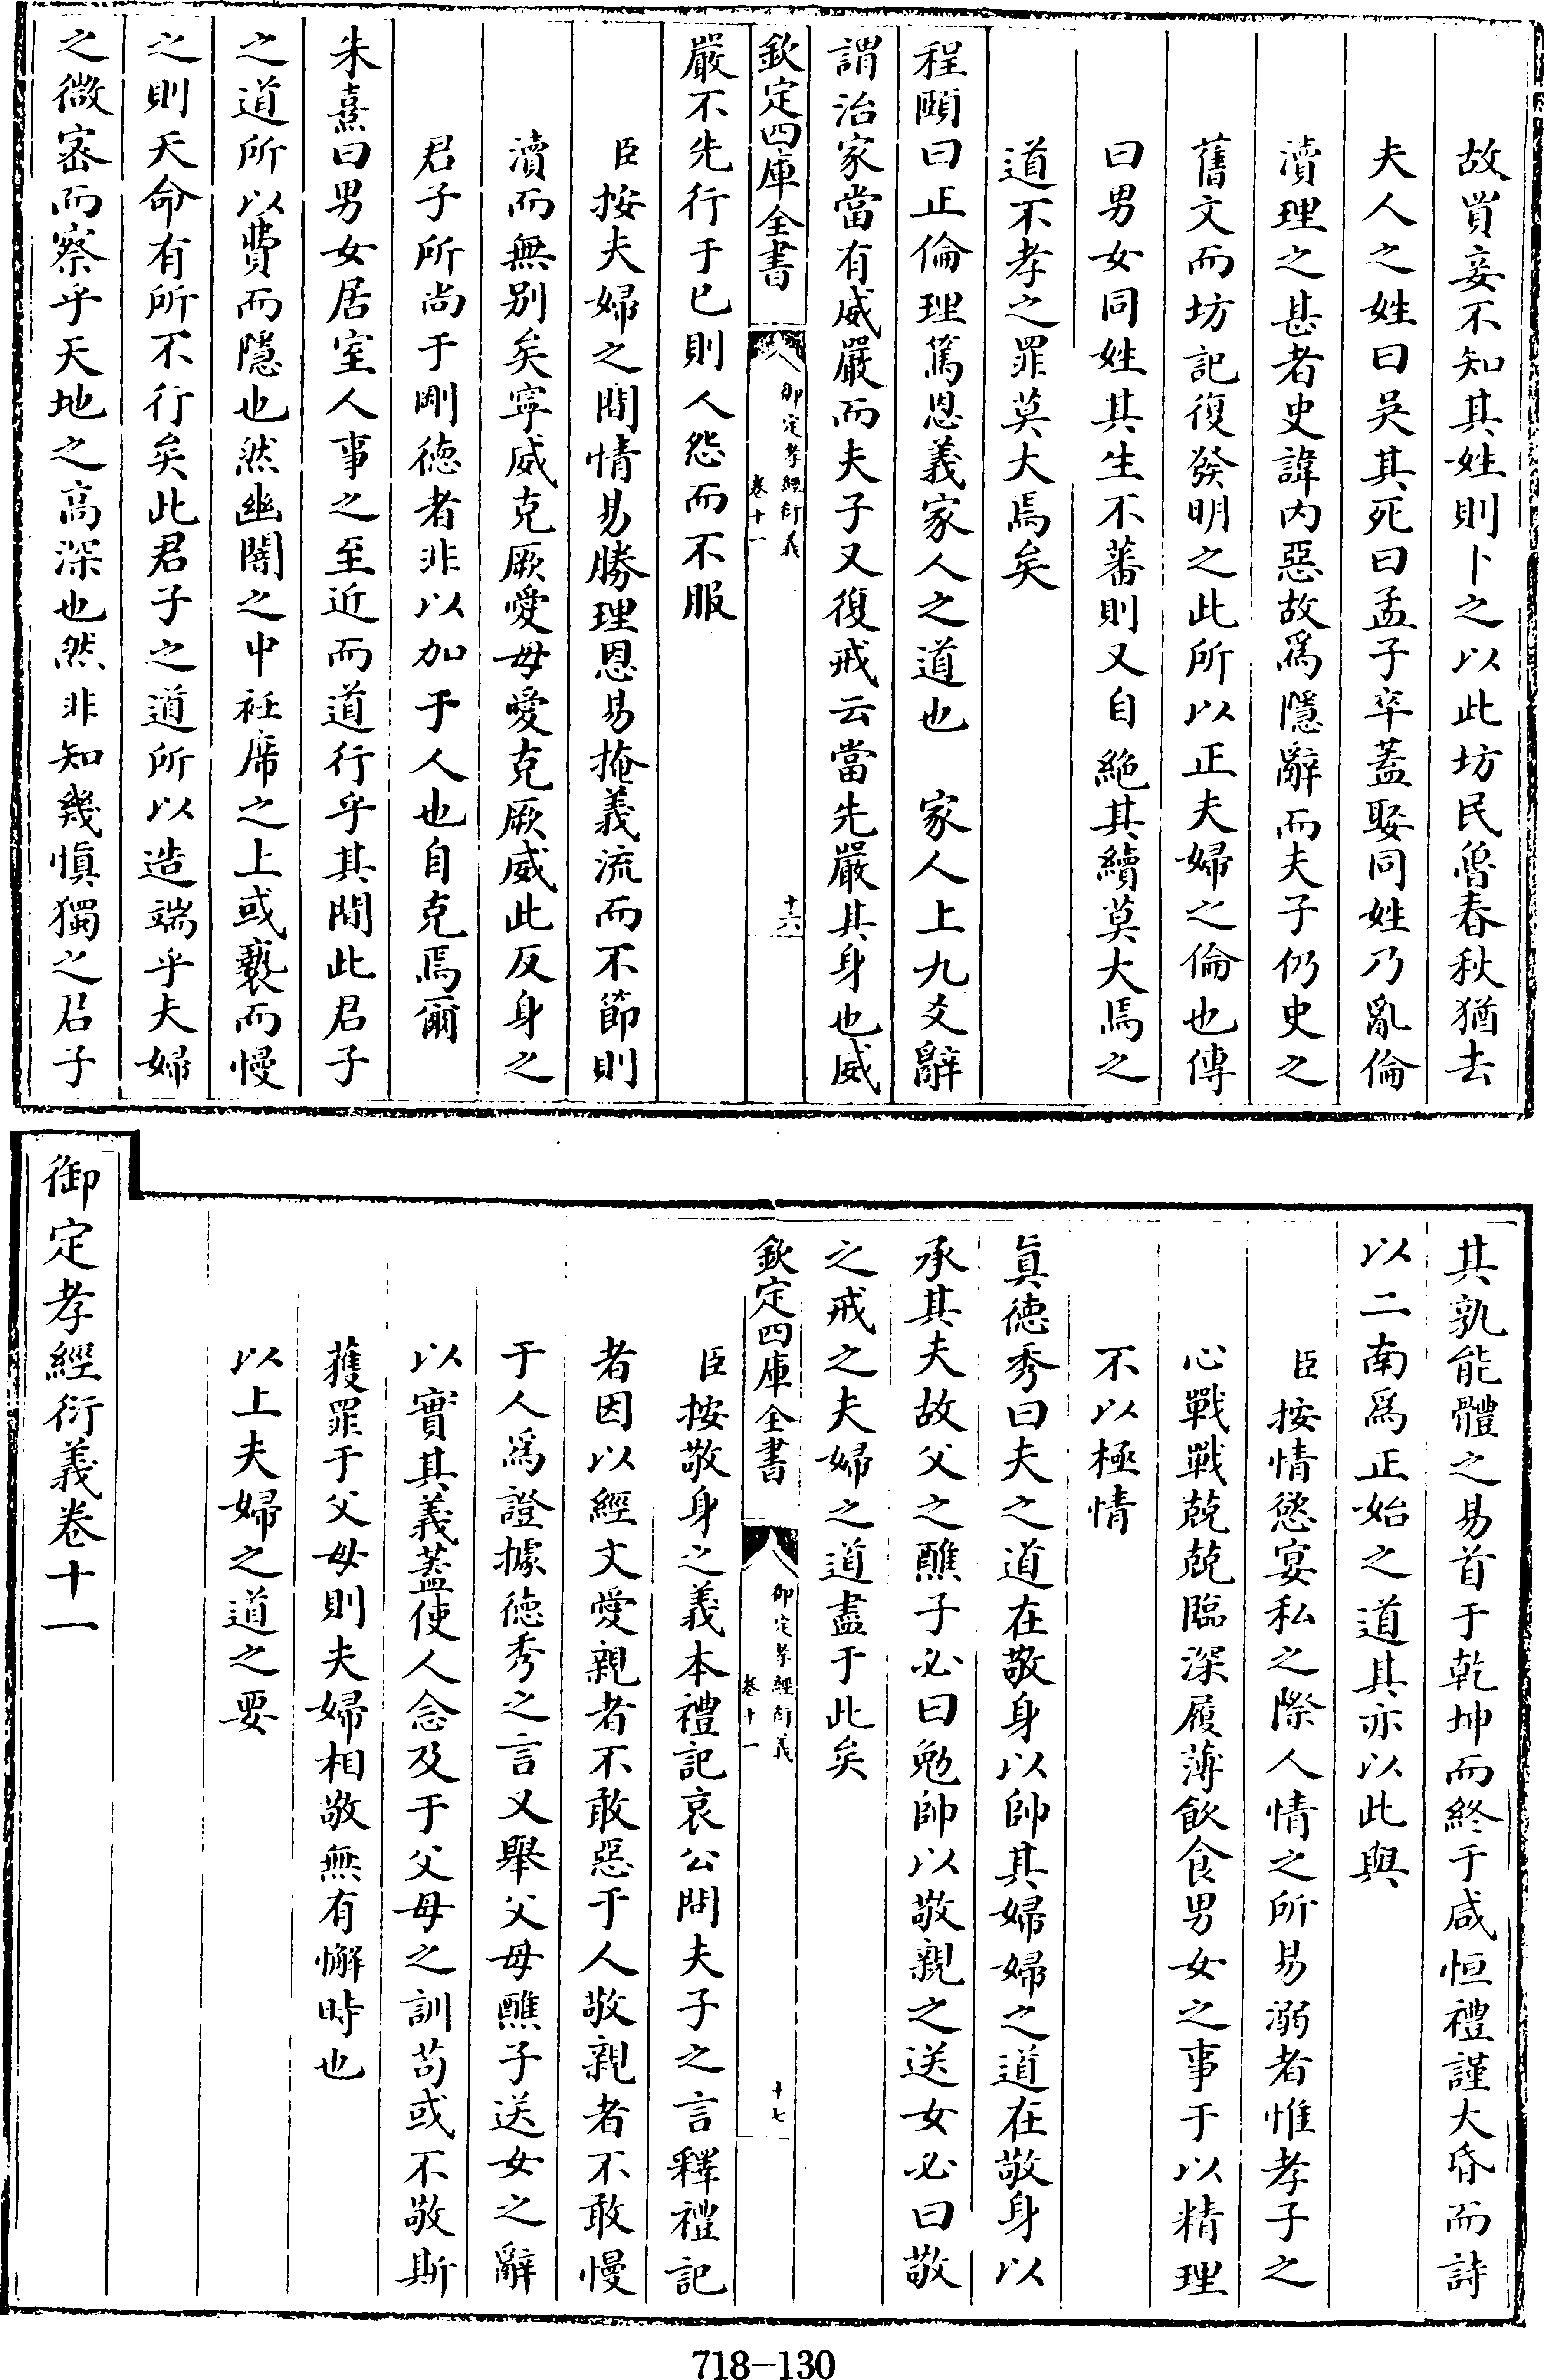 故買妾不知其姓則卜之以此坊民魯春秋猶去
夫人之姓曰吳其死曰孟子卒蓋娶同姓乃亂倫
瀆理之甚者史諱内惡故爲隱辭而夫子仍史之
舊文而坊記復發明之此所以正夫婦之倫也傳
曰男女同姓其生不蕃則又自絶其續莫大焉之
道不孝之罪莫大焉矣
程頤曰正倫理篤恩義家人之道也　家人上九爻辭
謂治家當有威嚴而夫子又復戒云當先嚴其身也威
欽定四庫全書
御定孝經衍義
卷十一
十六
嚴不先行于已則人怨而不服
臣按夫婦之閒情易勝理恩易掩義流而不節則
瀆而無别矣寧威克厥愛毋愛克厥威此反身之
君子所尚于剛德者非以加于人也自克焉爾
朱熹曰男女居室人事之至近而道行乎其閒此君子
之道所以費而隱也然幽闇之中衽席之上或褻而慢
之則天命有所不行矣此君子之道所以造端乎夫婦
之微宻而察乎天地之高深也然非知幾慎獨之君子
其孰能體之易首于乾坤而終于咸恒禮謹大昏而詩
以二南爲正始之道其亦以此與
臣按情慾宴私之際人情之所易溺者惟孝子之
心戰戰兢兢臨深履薄飲食男女之事于以精理
不以極情
眞德秀曰夫之道在敬身以帥其婦婦之道在敬身以
承其夫故父之醮子必曰勉帥以敬親之送女必曰敬
之戒之夫婦之道盡于此矣
欽定四庫全書
御定孝經衍義
卷十一
十七
臣按敬身之義本禮記哀公問夫子之言釋禮記
者因以經文愛親者不敢惡于人敬親者不敢慢
于人爲證據德秀之言又舉父母醮子送女之辭
以實其義蓋使人念及于父母之訓苟或不敬斯
獲罪于父母則夫婦相敬無有懈時也
以上夫婦之道之要
御定孝經衍義卷十一
718-130